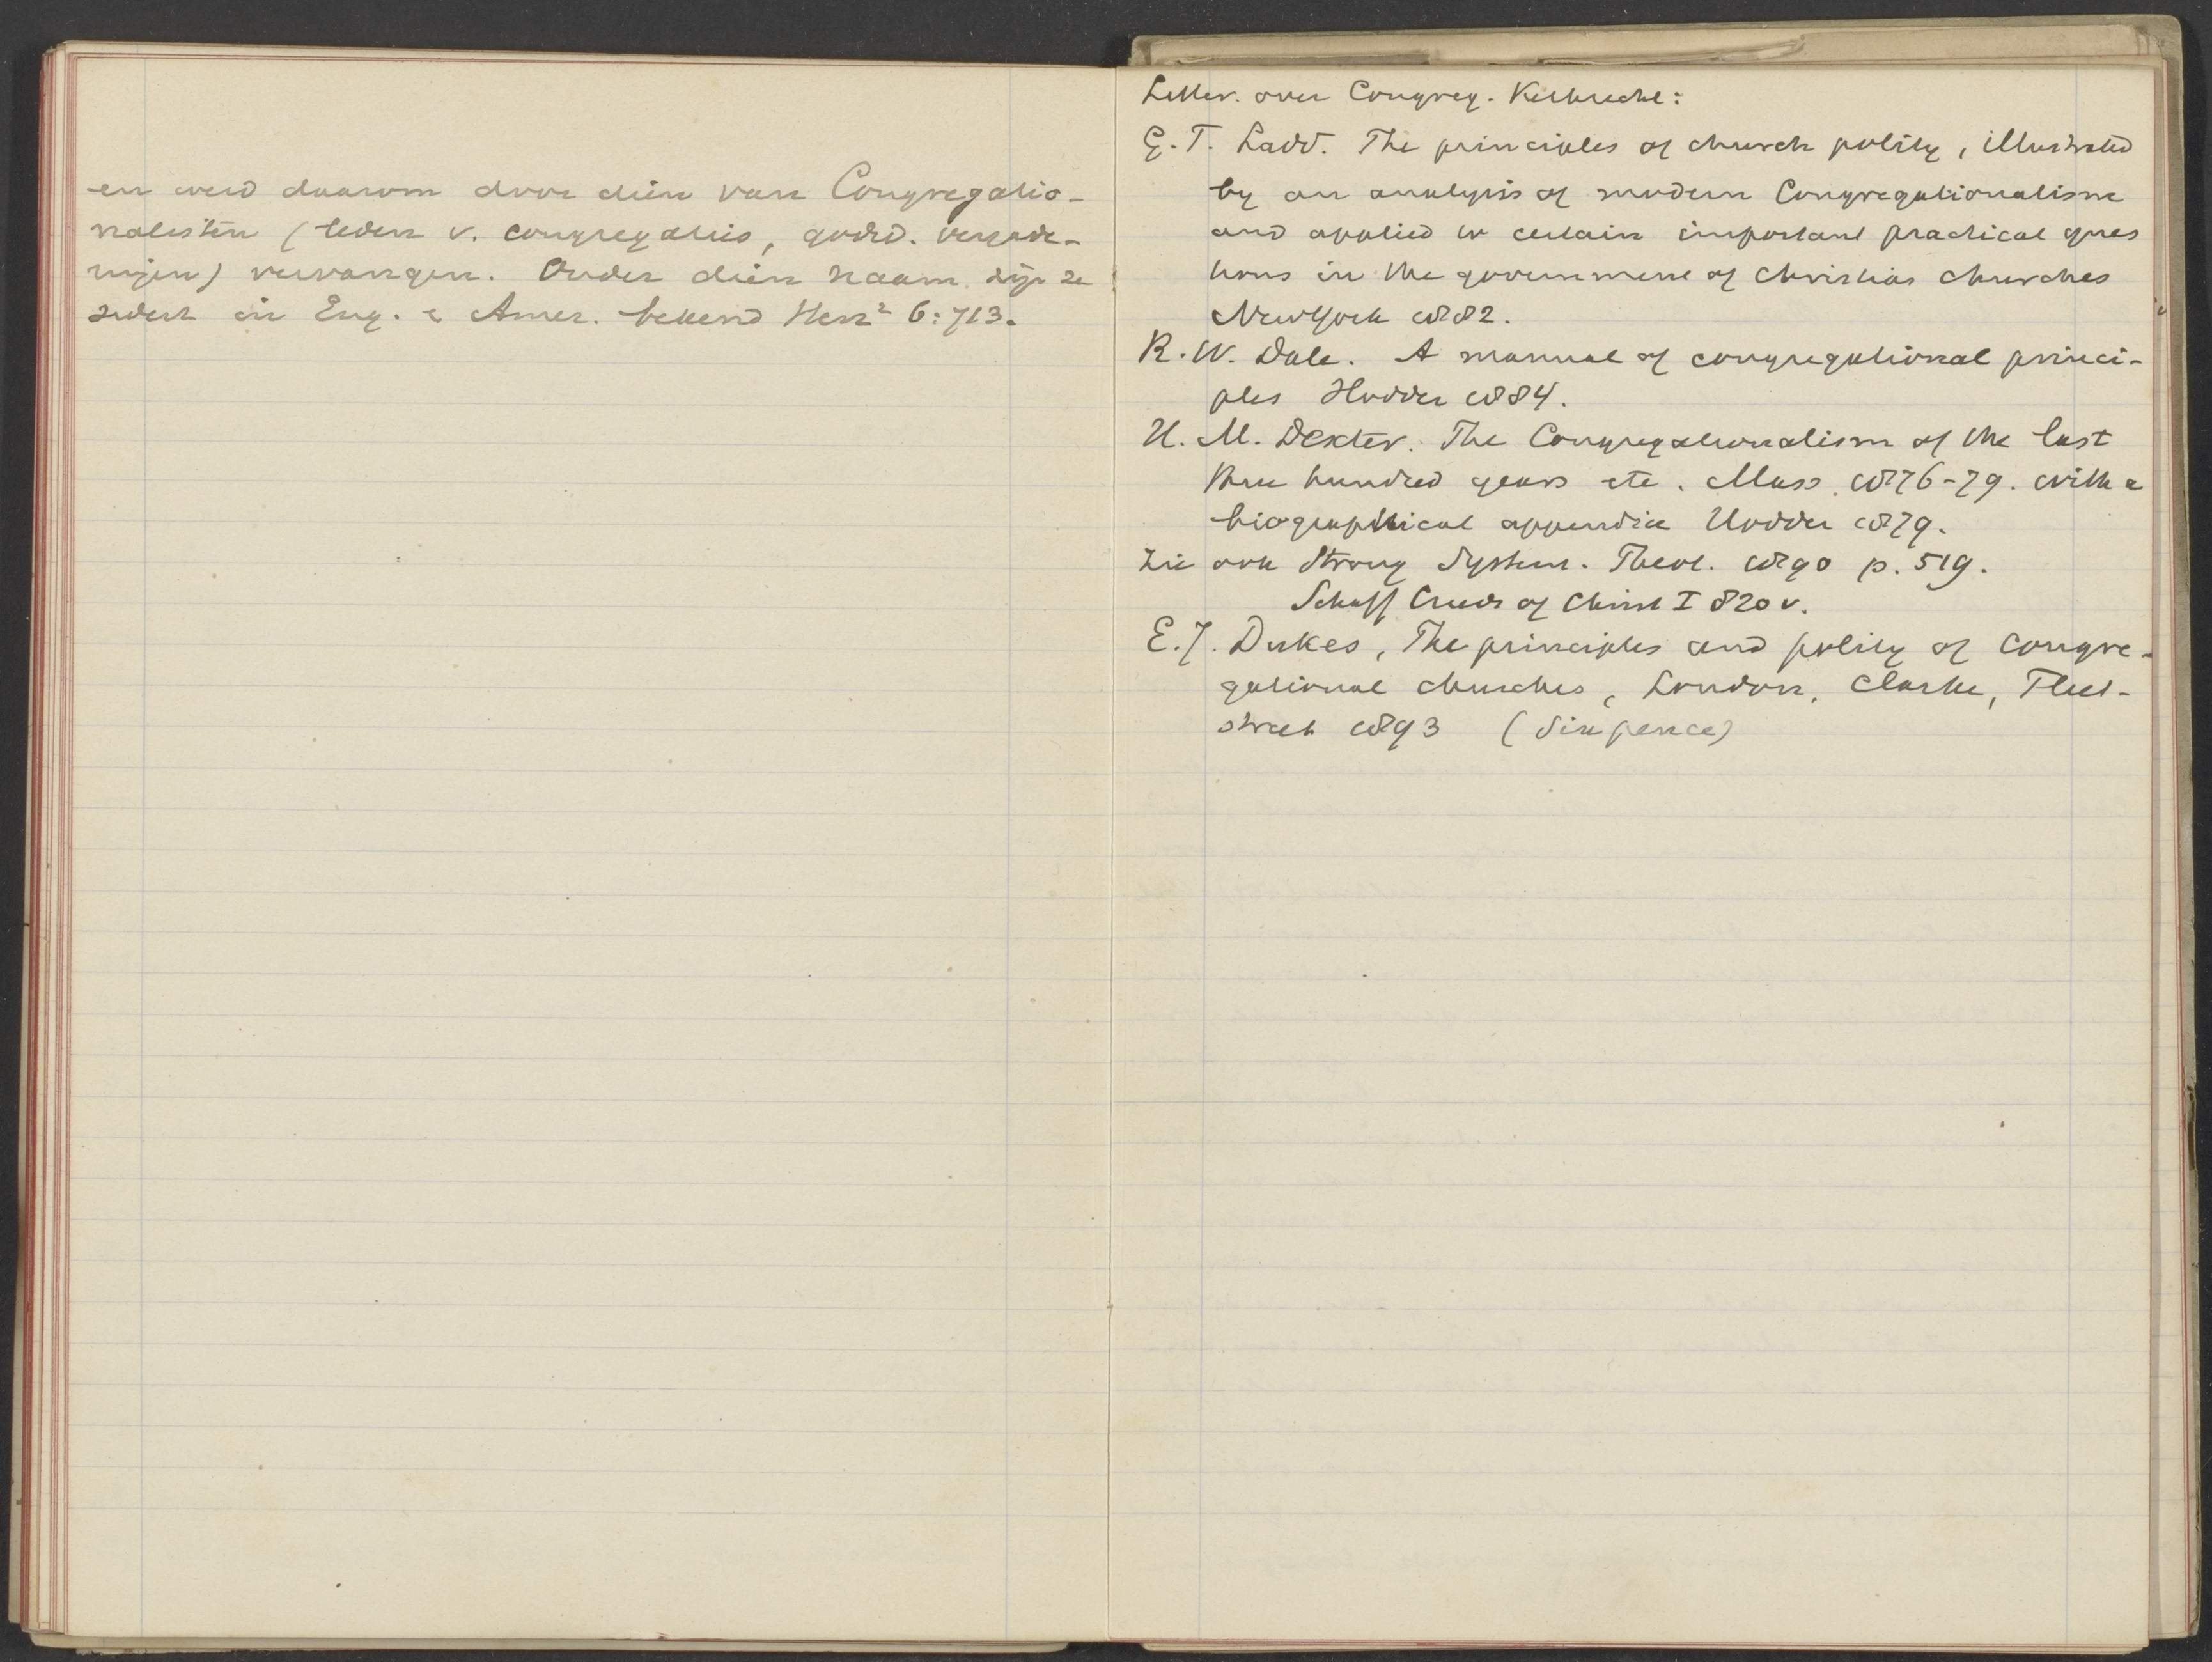 en werd daarom door dien van Congregatio-
nalisten (leden v. congregaties, godsd. vergade-
ringen) vervangen. Onder dien naam zijn ze
sedert in Eng. & Amer. bekend Herz² 6:713.
Litter. over Congreg. Kerkrecht:
G. T. Ladd. The principles of church polity, illustrated
by an analysis of modern Congregationalism
and applied to certain important practical ques
tions in the government of Christian churches
New York 1882.
R. W. Dale. A manual of congregational princi-
ples Hodder 1884.
H. M. Dexter. The Congregationalism of the last
three hundred years etc. Mass. 1876-79. with a
biographical appendix Hodder 1879.
Zie ook Strong System. Theol. 1890 p. 519.
Schaff Creeds of Christ I 820 v.
E. J. Dukes, The principles and polity of congre-
gational churches, London, Clarke, Fleet-
street 1893 (Sixpence)